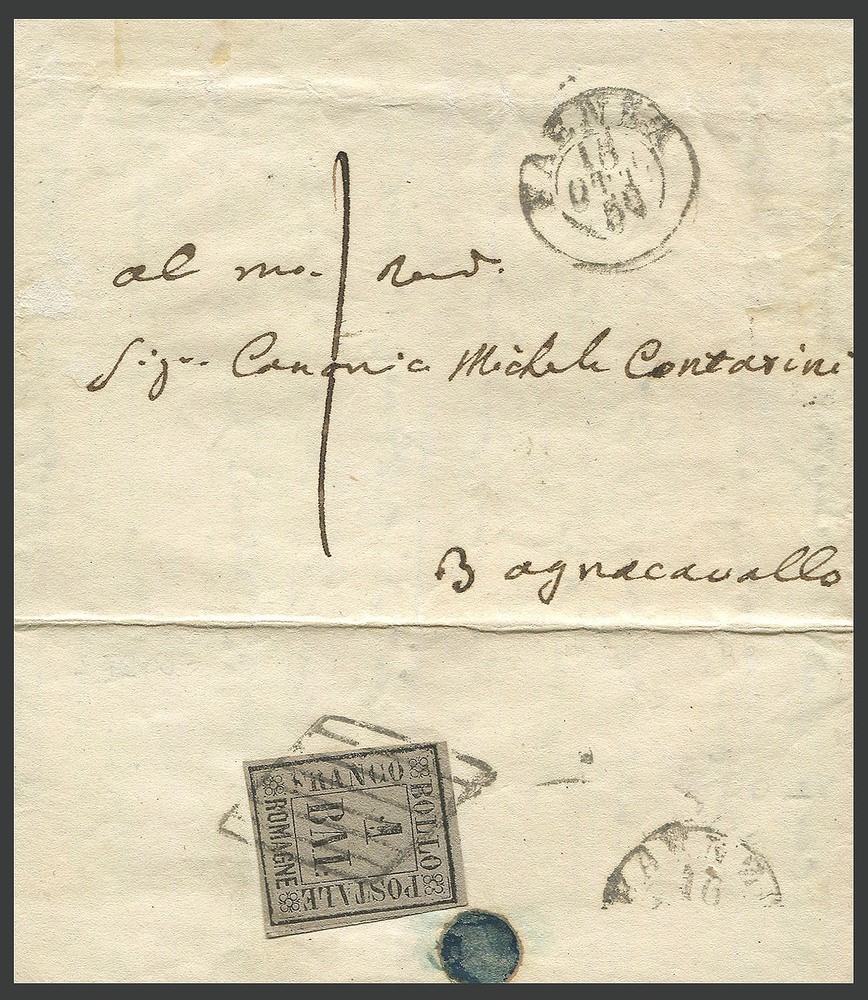 FAENZA
18
OTT.
59
1
al mo. Revd.
Sigr. Canonico Michele Contarini
Bagnacavallo
FRANCO
BOLLO
POSTALE
ROMAGNE
1
BAI
16